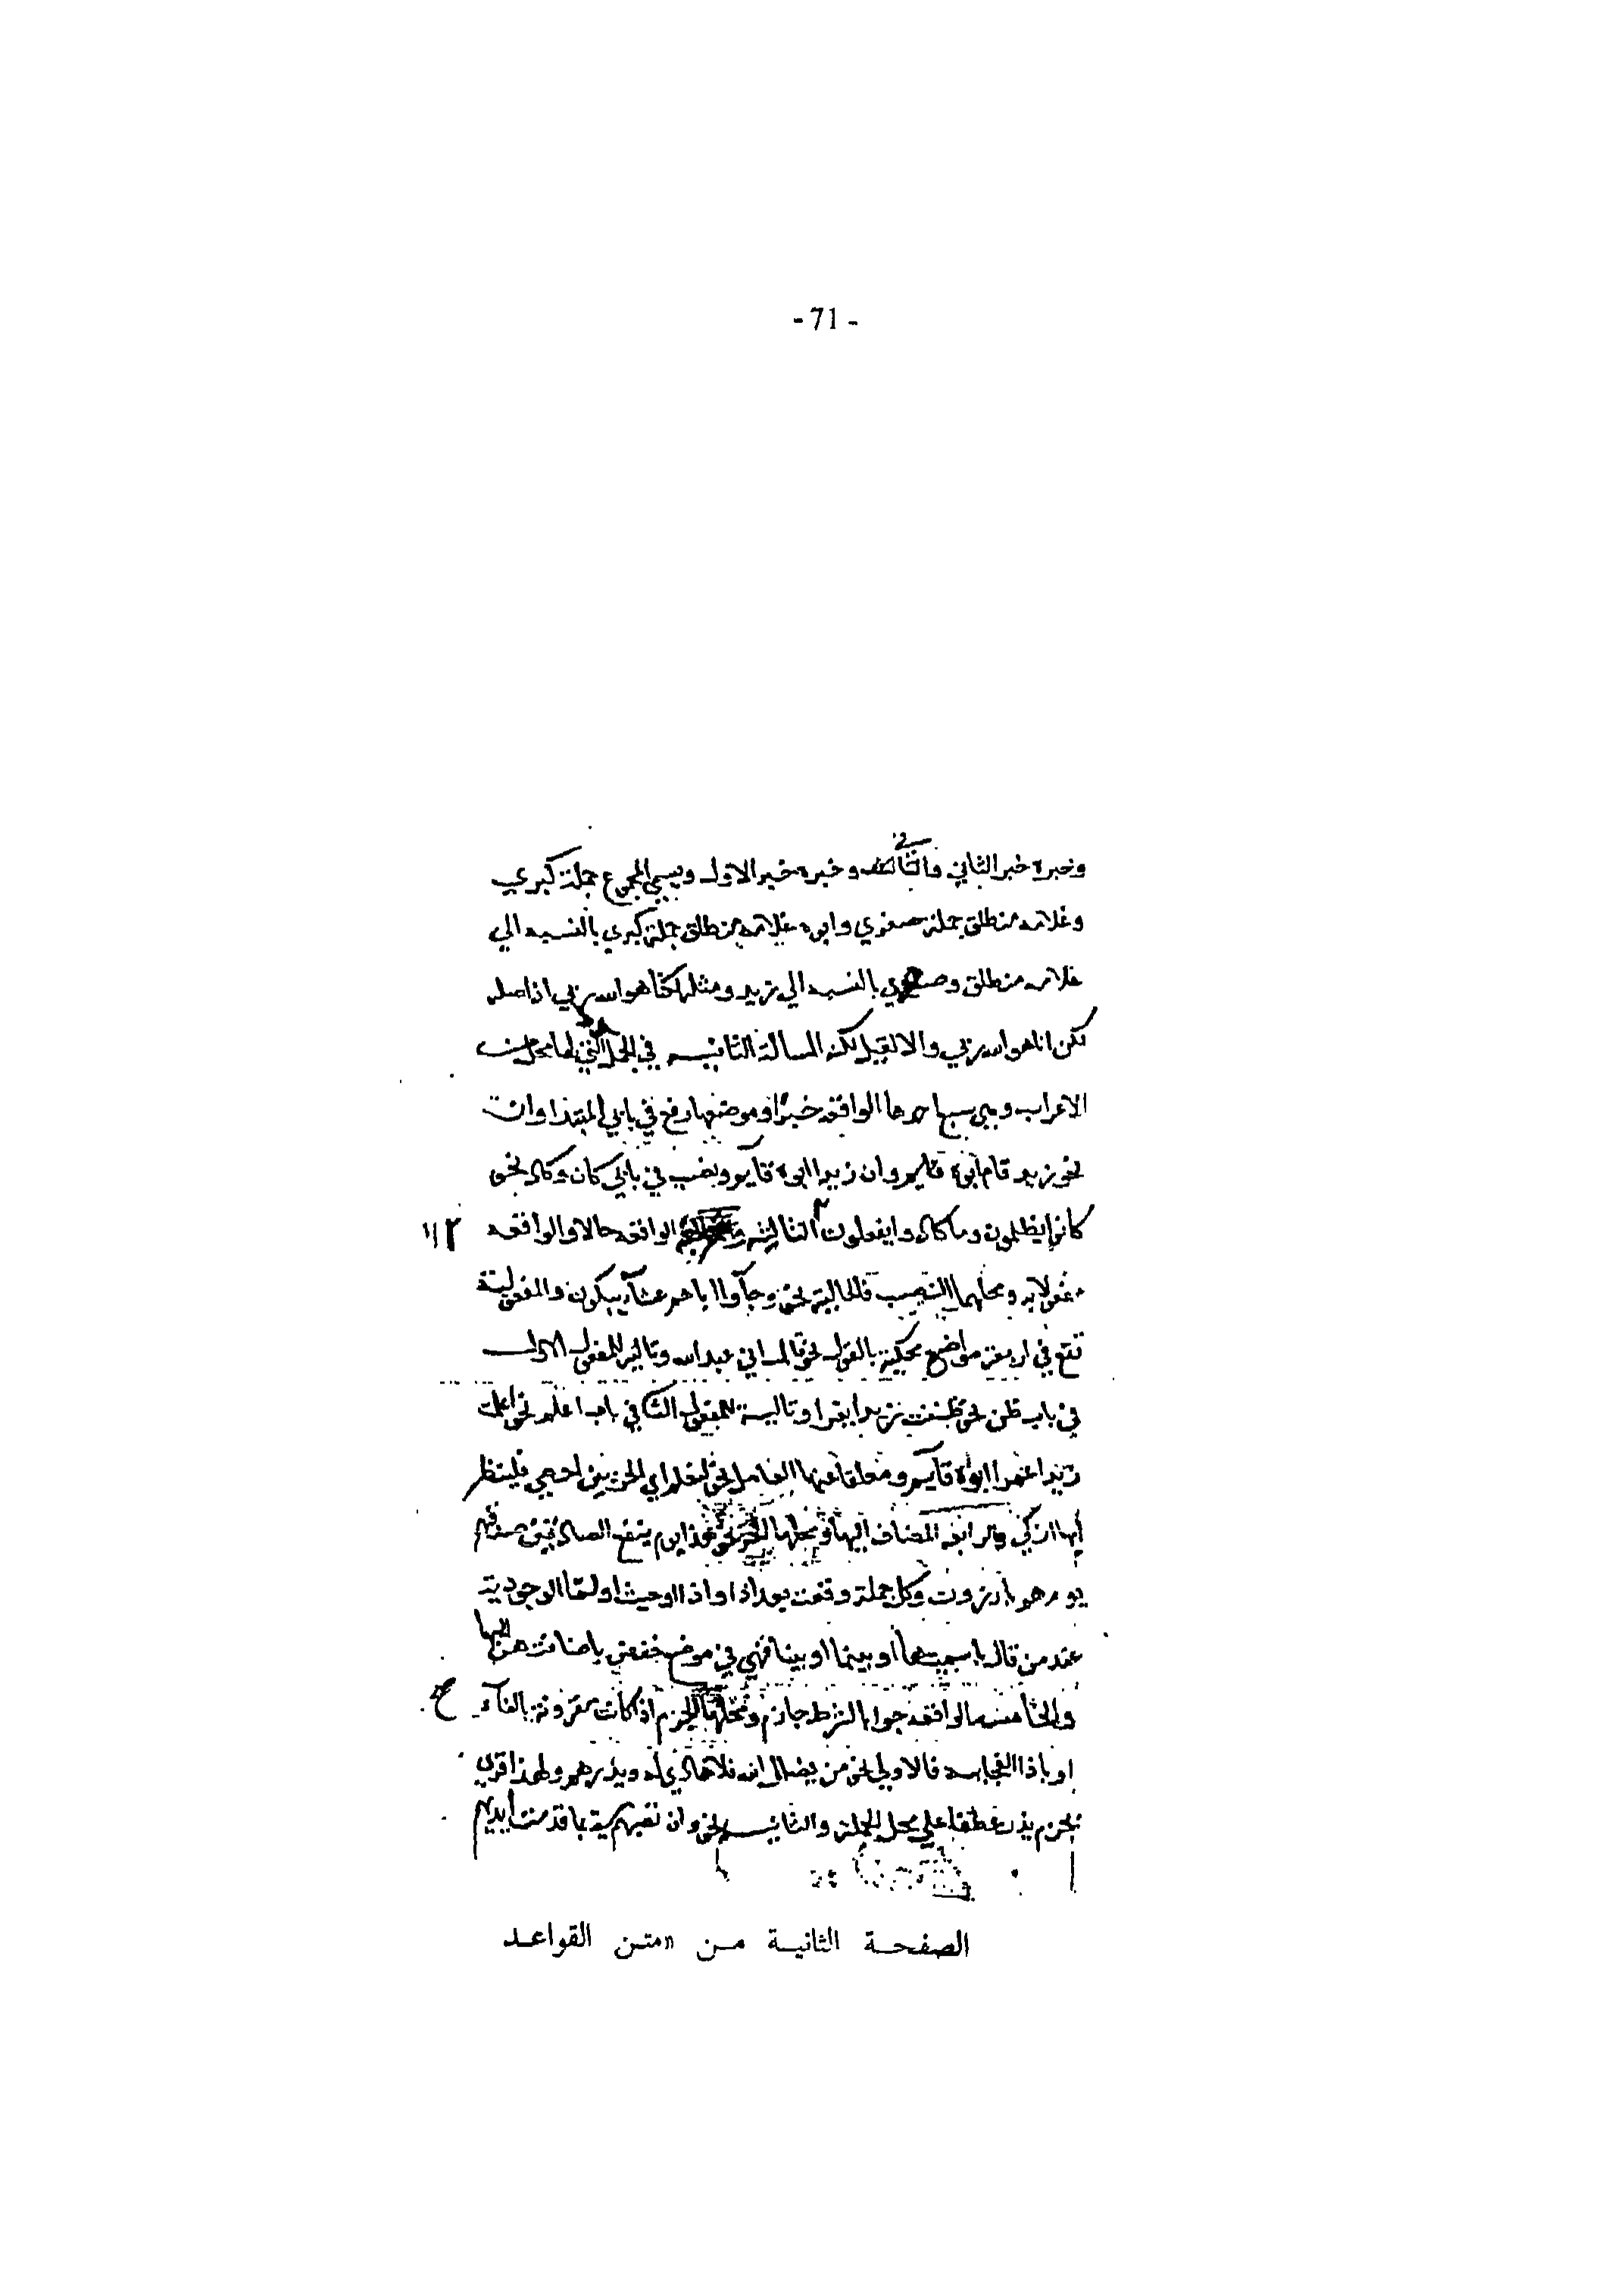 - 71 -
وخبره خبر الثاني والثاني وخبره خبر الاول ويسمي المجموع جملة كبري
وغلامه منطلق جملة صغري وابوه غلامه منطلق جملة كبري بالنسبه الي
غلامه منطلق وصغري بالنسبه الي زيد ومثله لكنا هو الله ربي اذ اصله
لكن انا هو الله ربي والا لقيل لكنه المسالة الثانيه في الجمل التي لها محل من
الاعراب وهي سبع احدها الواقعه خبرا وموضعها رفع في بابي المبتدا وان
نحو زيد قام ابوه وان زيدا ابوه قايم ونصب في بابي كان وكاد نحو
كانوا يظلمون وما كادوا يفعلون الثانيه والثالثه الواقعه حالا والواقعه
مفعولا به ومحلهما النصب فالحالية نحو وجآوا اباهم عشآء يبكون والمفعولية
تقع في اربعة مواضع محكية بالقول نحو قال اني عبد الله وتالية للمفعول الاول
في باب ظن نحو ظننت زيدا يقرا وتالية للمفعول الثاني في باب اعلم نحو اعلمت
زيدا عمرا ابوه قآيم ومعلقا عنها العامل نحو لنعلم اي الحزبين احصي فلينظر
ايها ازكي والرابعه المضاف اليها ومحلها الجر نحو هذا يوم ينفع الصادقين صدقهم
يوم هم بارزون وكل جملة وقعت بعد اذ او اذا او حيث او لما الوجودية
عند من قال باسميتها او بينما او بينا فهي في موضع خفض باضافتهن اليها
والخامسه الواقعه جوابا لشرط جازم ومحلها الجزم اذا كانت مقرونة بالفآء
او باذا الفجاييه فالاولي نحو من يضلل الله فلا هادي له ويذرهم ولهذا قري
بجزم يذر عطفا علي محل الجملة والثانيه نحو وان تصبهم سيئة بما قدمت ايديهم
الصفحة الثانية من «متن القواعد